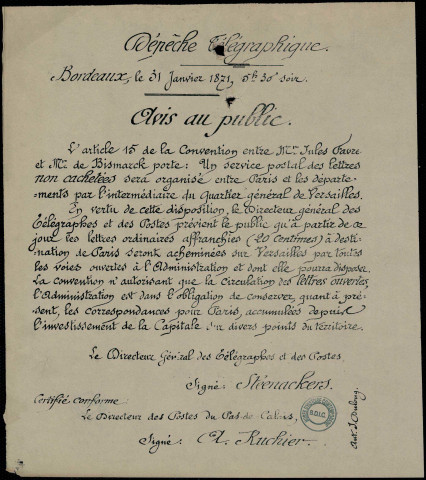 Dépêche Télégraphique.
Bordeaux, le 31 Janvier 1871, 5h 30m soir.
Avis au public.
L'article 15 de la Convention entre Mr. Jules Favre
et Mr. de Bismarck porte: Un service postal des lettres
non cachetées sera organisé entre Paris et les départe-
-ments par l'intermédiaire du Quartier général de Versailles.
En vertu de cette disposition, le Directeur général des
Télégraphes et des Postes prévient le public qu'à partir de ce
jour les lettres ordinaires affranchies (20 centimes) à desti-
nation de Paris seront acheminées sur Versailles par toutes
les voies ouvertes à l'Administration et dont elle pourra disposer.
La convention n'autorisant que la Circulation des lettres ouvertes,
l'Administration est dans l'obligation de conserver, quant à pré-
sent, les correspondances pour Paris, accumulées depuis
l'investissement de la Capitale sur divers points du territoire.
Le Directeur Général des Télégraphes et des Postes
Signé: Steenackers.
Certifié conforme
Le Directeur des Postes du Pas-de-Calais,
Signé: A. Kuchier.
B.D.I.C